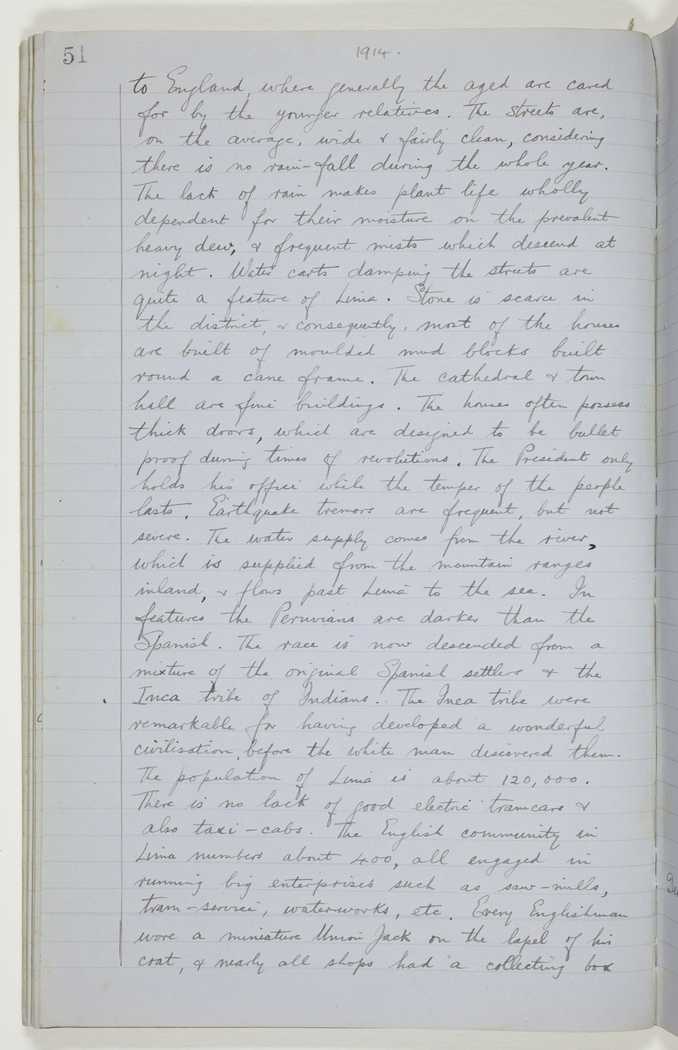 51
1914.
to England, where generally the aged are cared
for by the younger relatives. The streets are,
on the average, wide & fairly clean, considering
there is no rain-fall during the whole year.
The lack of rain makes plant life wholly
dependent for their moisture on the prevalent
heavy dew, & frequent mists which descend at
night. Water carts damping the streets are
quite a feature of Lima. Stone is scarce in
the district, & consequently, most of the houses
are built of moulded mud blocks built
round a cane frame. The cathedral & town
hall are fine buildings. The houses often possess
thick doors, which are designed to be bullet
proof during times of revolutions. The President only
holds his office while the temper of the people
lasts. Earthquake tremors are frequent, but not
severe. The water supply comes from the river,
which is supplied from the mountain ranges
inland, & flows past Lima to the sea. In
features the Peruvians are darker than the
Spanish. The race is now descended from a
mixture of the original Spanish settlers & the
Inca tribe of Indians. The Inca tribe were
remarkable for having developed a wonderful
civilisation, before the white man discovered them.
The population of Lima is about 120,000.
There is no lack of good electric tramcars &
also taxi-cabs. The English community in
Lima numbers about 400, all engaged in
running big enterprises such as saw-mills,
tram-service, waterworks, etc. Every Englishman
wore a miniature Union Jack on the lapel of his
coat, & nearly all shops had a collecting box